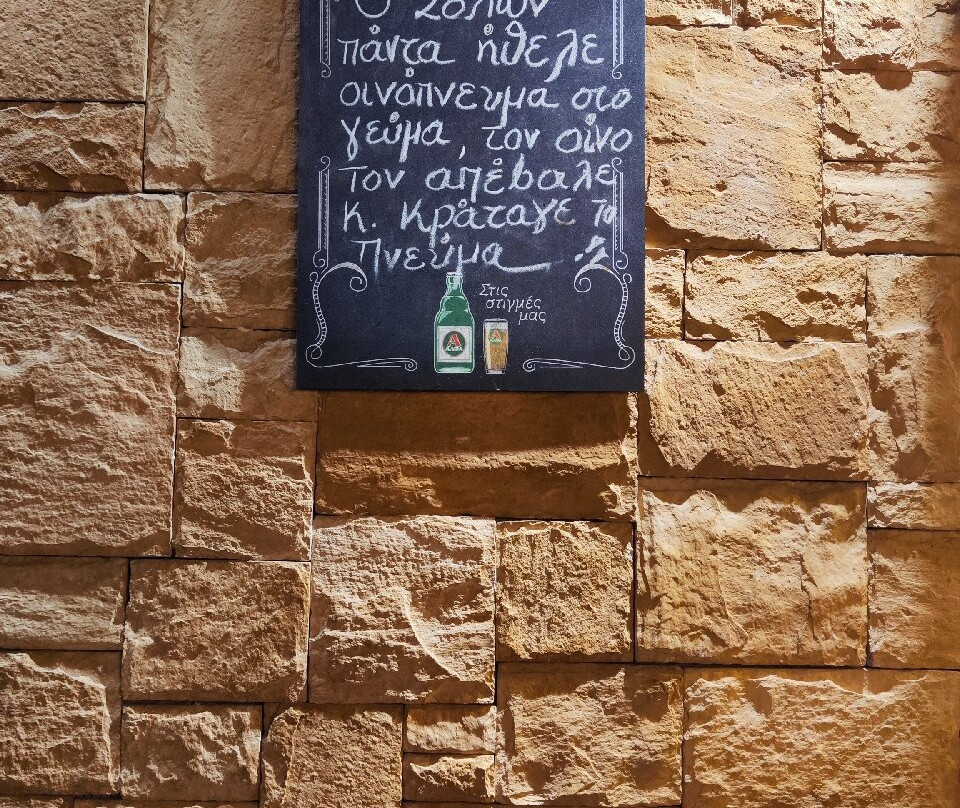 Ο Σόλων
πάντα ήθελε
οινόπνευμα στο
γεύμα, τον οίνο
τον απέβαλε
Κ. Κράταγε το
Πνεύμα
Στις
στιγμές
μας
ΑΛΦΑ